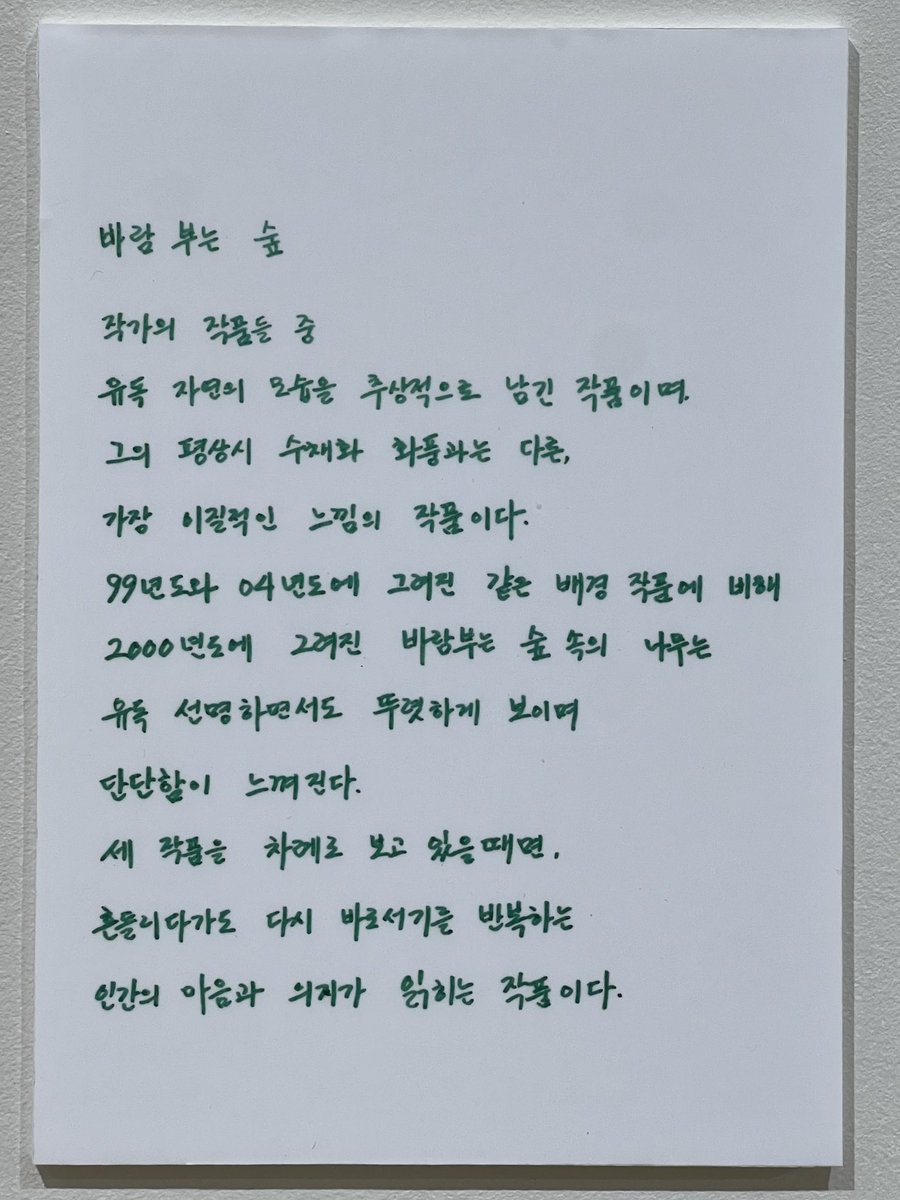 바람 부는 숲
작가의 작품들 중
유독 자연의 모습을 추상적으로 남긴 작품이며,
그의 평상시 수채화 화풍과는 다른,
가장 이질적인 느낌의 작품이다.
99년도와 04년도에 그려진 같은 배경 작품에 비해
2000년도에 그려진 바람부는 숲 속의 나무는
유독 선명하면서도 뚜렷하게 보이며
단단함이 느껴진다.
세 작품을 차례로 보고 있을때면,
흔들리다가도 다시 바로서기를 반복하는
인간의 마음과 의지가 읽히는 작품이다.